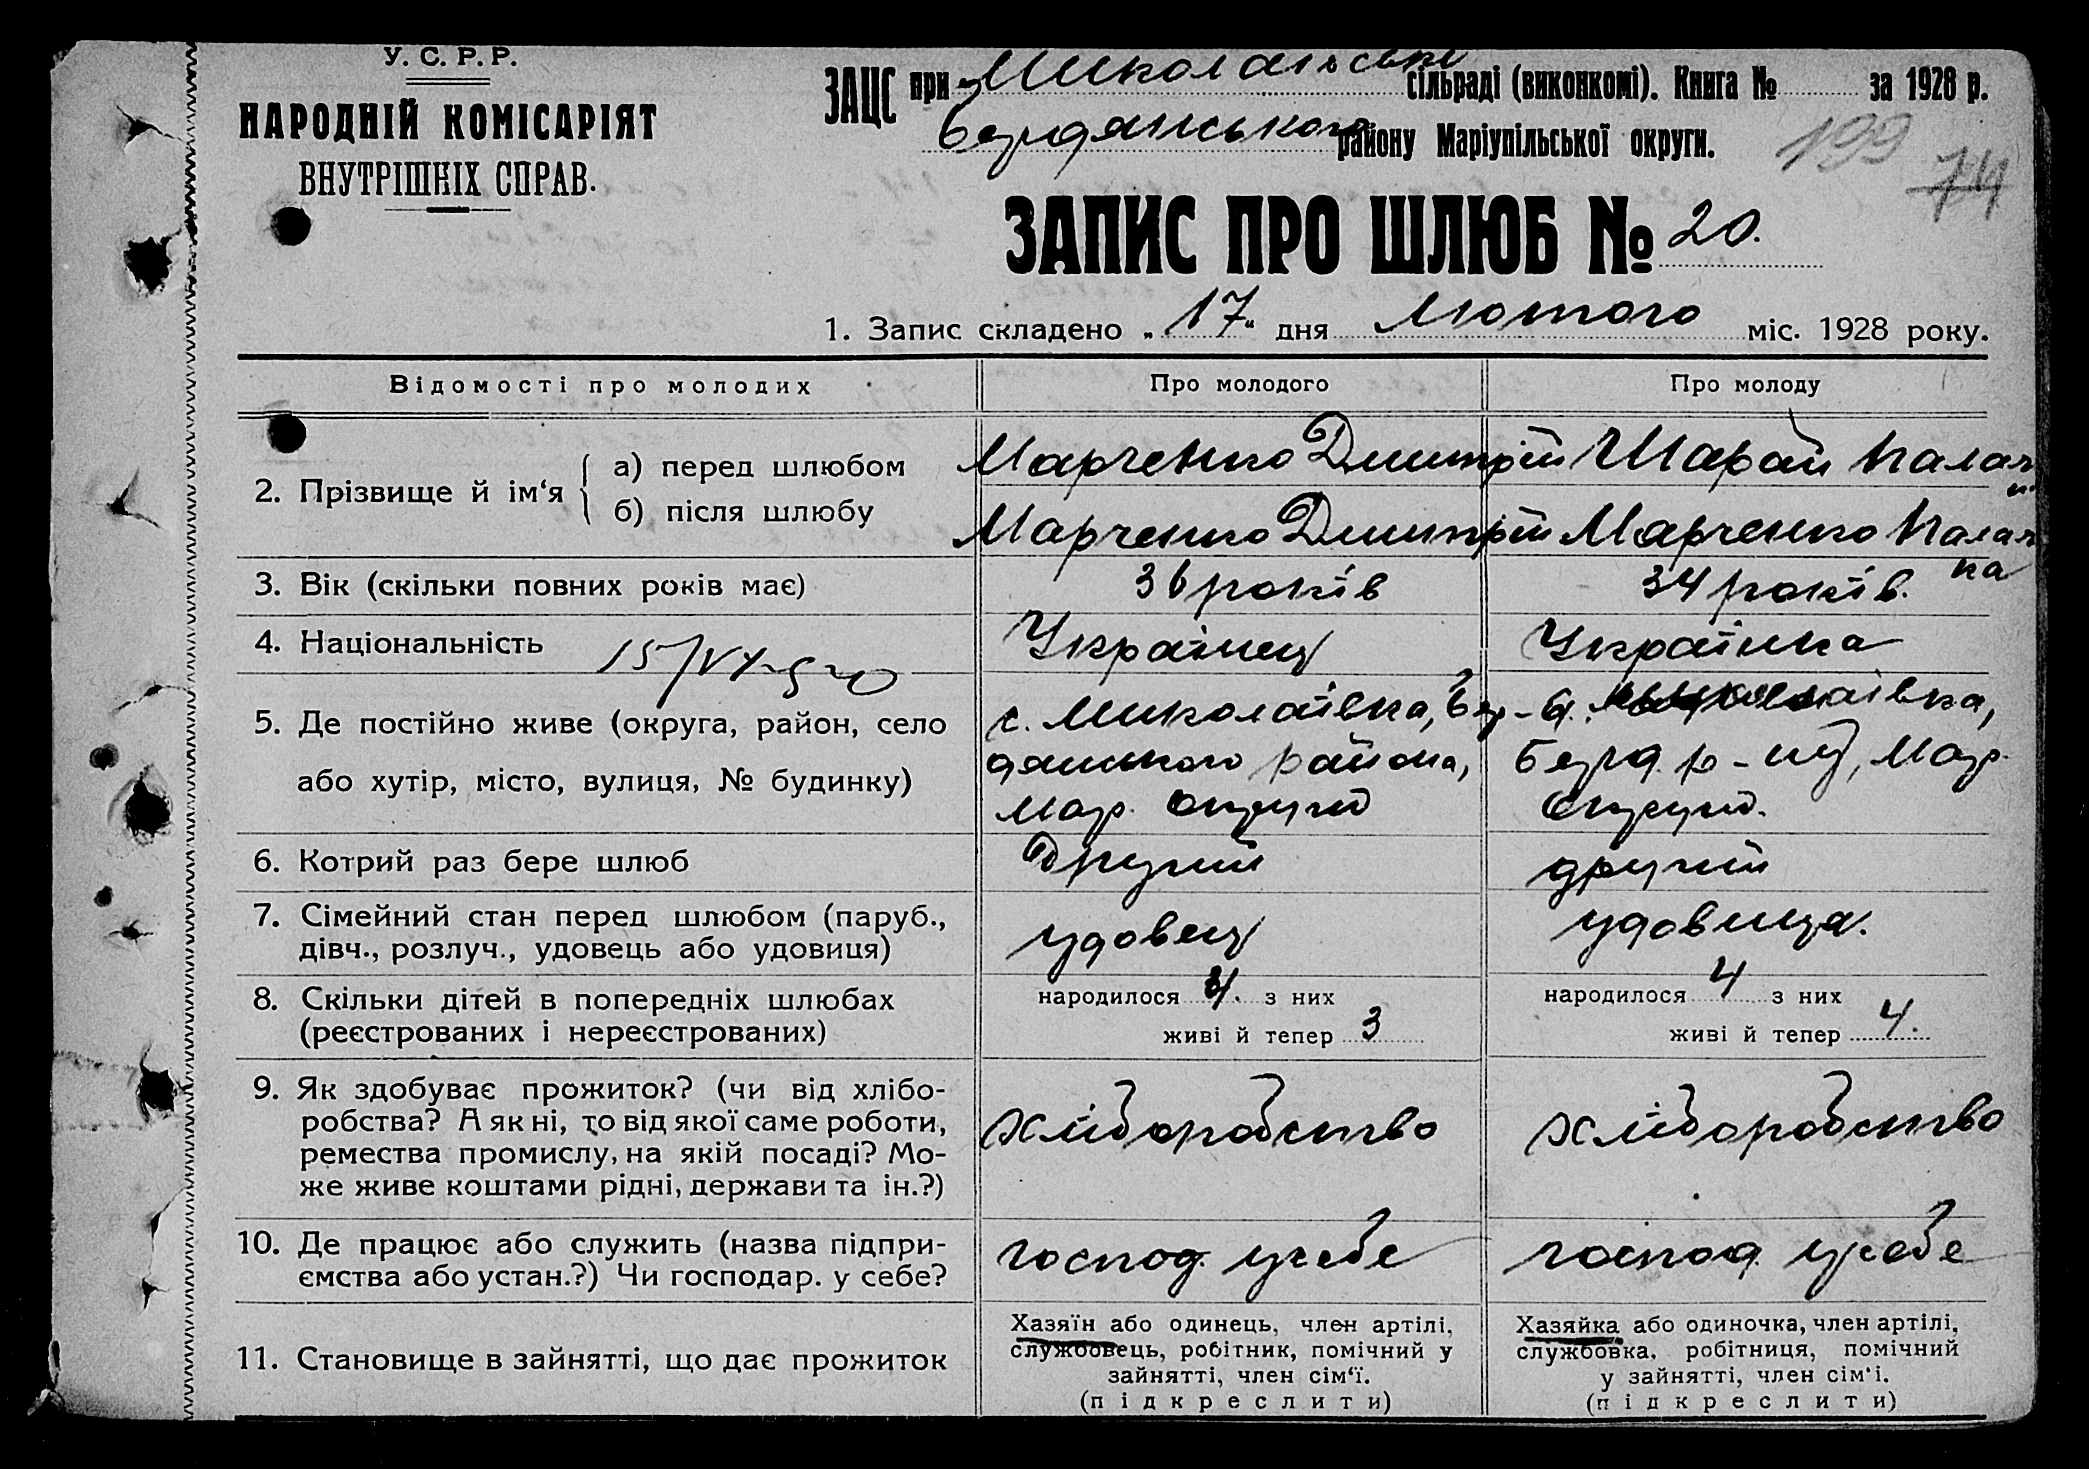 У. С. Р. Р.
НАРОДНІЙ КОМІСАРІЯТ
ВНУТРІШНІХ СПРАВ.
ЗАЦС при Миколаївські сільраді (виконкомі). Книга № за 1928 р.
Бердянського району Маріупільської округи.
199
74
ЗАПИС ПРО ШЛЮБ № 20.
1. Запис складено „ 17 “ дня Лютого міс. 1928 року.
Відомості про молодих
Про молодого
Про молоду
2. Прізвище й ім‘я
а) перед шлюбом
Марченко Дмитрій
Шарай
б) після шлюбу
Марченко Дмитрій
Марченко
3. Вік (скільки повних років має)
36 років
34 років.
4. Національність
Українец
Українка
5. Де постійно живе (округа, район, село
або хутір, місто, вулиця, № будинку)
с. Миколаївка, Бер-
дянського района,
Мар. округи
Миколаївка,
Берд. р-ну, Мар.
округи.
6. Котрий раз бере шлюб
Другий
другий
7. Сімейний стан перед шлюбом (паруб.,
дівч., розлуч., удовець або удовиця)
удовец
удовица.
8. Скільки дітей в попередніх шлюбах
(реєстрованих і нереєстрованих)
народилося 4. з них
живі й тепер 3
народилося 4 з них
живі й тепер 4.
9. Як здобуває прожиток? (чи від хлібо-
робства? А як ні, то від якої саме роботи,
ремества промислу, на якій посаді? Мо-
же живе коштами рідні, держави та ін.?)
хліборобство
хліборобство
10. Де працює або служить (назва підпри-
ємства або устан.?) Чи господар. у себе?
господ. у себе
господ. у себе
11. Становище в зайнятті, що дає прожиток
Хазяїн або одинець, член артілі,
службовець, робітник, помічний у
зайнятті, член сім‘ї.
(підкреслити)
Хазяйка або одиночка, член артілі,
службовка, робітниця, помічний
у зайнятті, член сім‘ї.
(підкреслити)